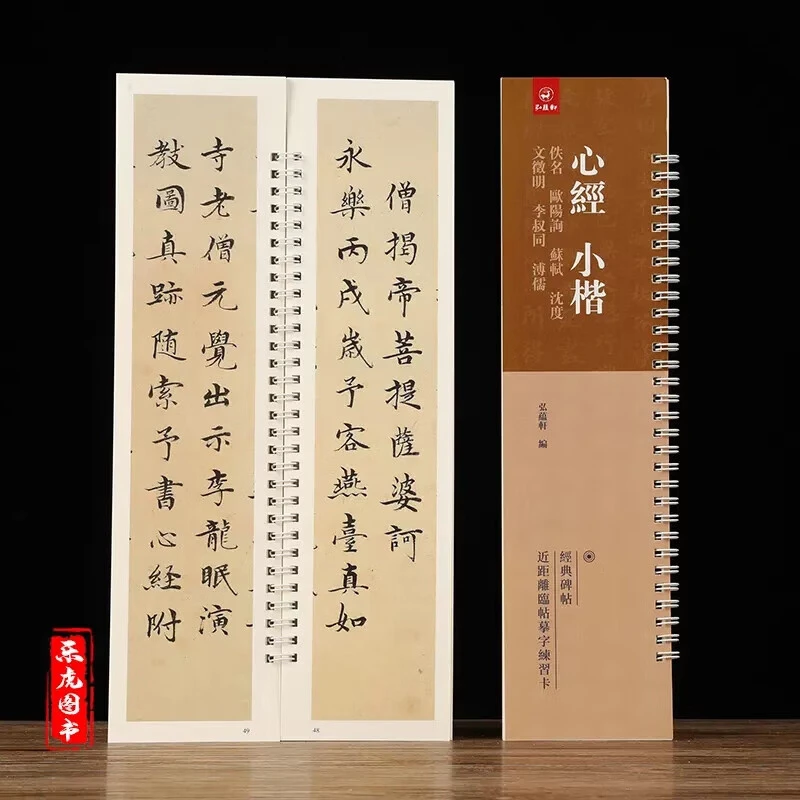 弘蘊軒
心經 小楷
佚名 歐陽詢 蘇軾 沈度
文徵明 李叔同 溥儒
弘蘊軒 編
經典碑帖
近距離臨帖摹字練習卡
僧揭帝菩提薩婆訶
永樂丙戌歲予客燕臺真如
48
寺老僧元覺出示李龍眠演
教圖真跡随索予書心経附
49
乐虎图书